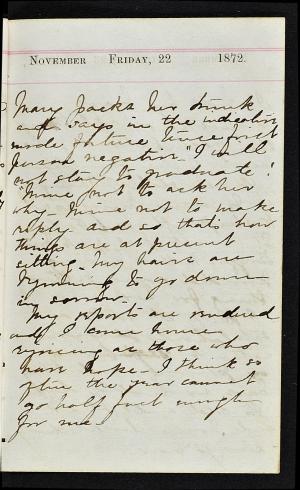 November Friday, 22 1872.
Mary packs her trunk
and says in the indicative
mode future tense first
person negative "I will
not stay to graduate!"
"Mine not to ask her
why - Mine not to make
reply and so that's how
things are at present
sitting. My hairs are
beginning to go down
in sorrow.
My reports are rendered
and I come home
rejoicing as those who
have hope - I think so
often the year cannot
go half fast enough
for me -